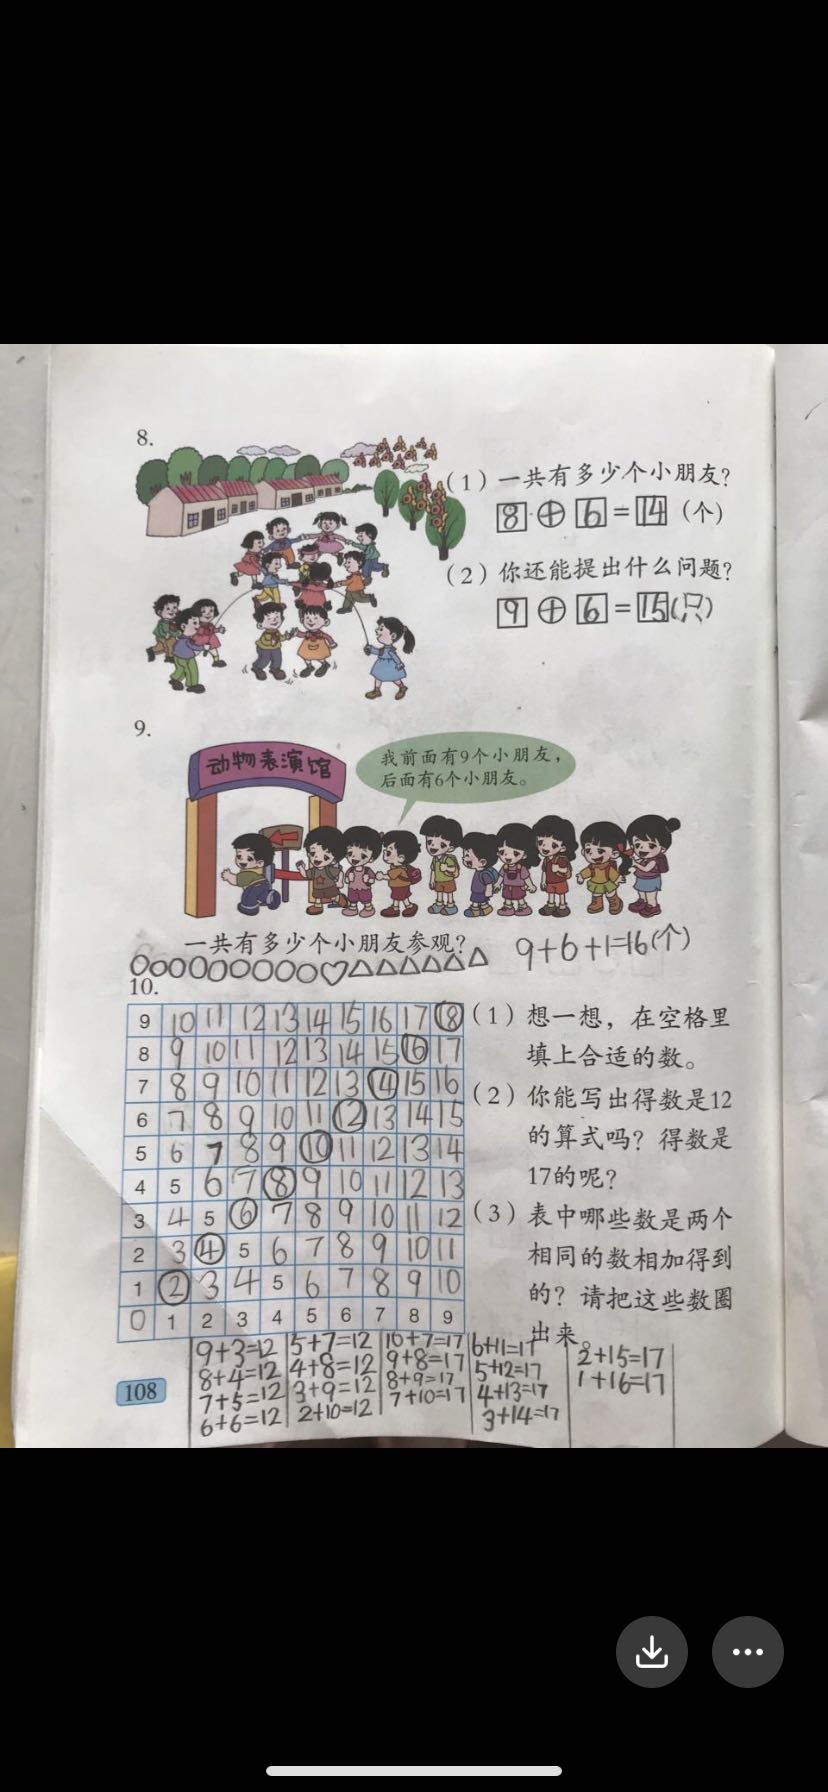 8.
(1) 一共有多少个小朋友?
8 + 6 = 14 (个)
(2) 你还能提出什么问题?
9 + 6 = 15(只)
9.
动物表演馆
我前面有9个小朋友,
后面有6个小朋友。
一共有多少个小朋友参观?
9+6+1=16(个)
10.
9 10 11 12 13 14 15 16 17 18
8 9 10 11 12 13 14 15 16 17
7 8 9 10 11 12 13 14 15 16
6 7 8 9 10 11 12 13 14 15
5 6 7 8 9 10 11 12 13 14
4 5 6 7 8 9 10 11 12 13
3 4 5 6 7 8 9 10 11 12
2 3 4 5 6 7 8 9 10 11
1 2 3 4 5 6 7 8 9 10
0 1 2 3 4 5 6 7 8 9
(1) 想一想,在空格里
填上合适的数。
(2) 你能写出得数是12
的算式吗?得数是
17的呢?
(3) 表中哪些数是两个
相同的数相加得到
的?请把这些数圈
出来。
9+3=12
8+4=12
7+5=12
6+6=12
5+7=12
4+8=12
3+9=12
2+10=12
10+7=17
9+8=17
8+9=17
7+10=17
6+11=17
5+12=17
4+13=17
3+14=17
2+15=17
1+16=17
108